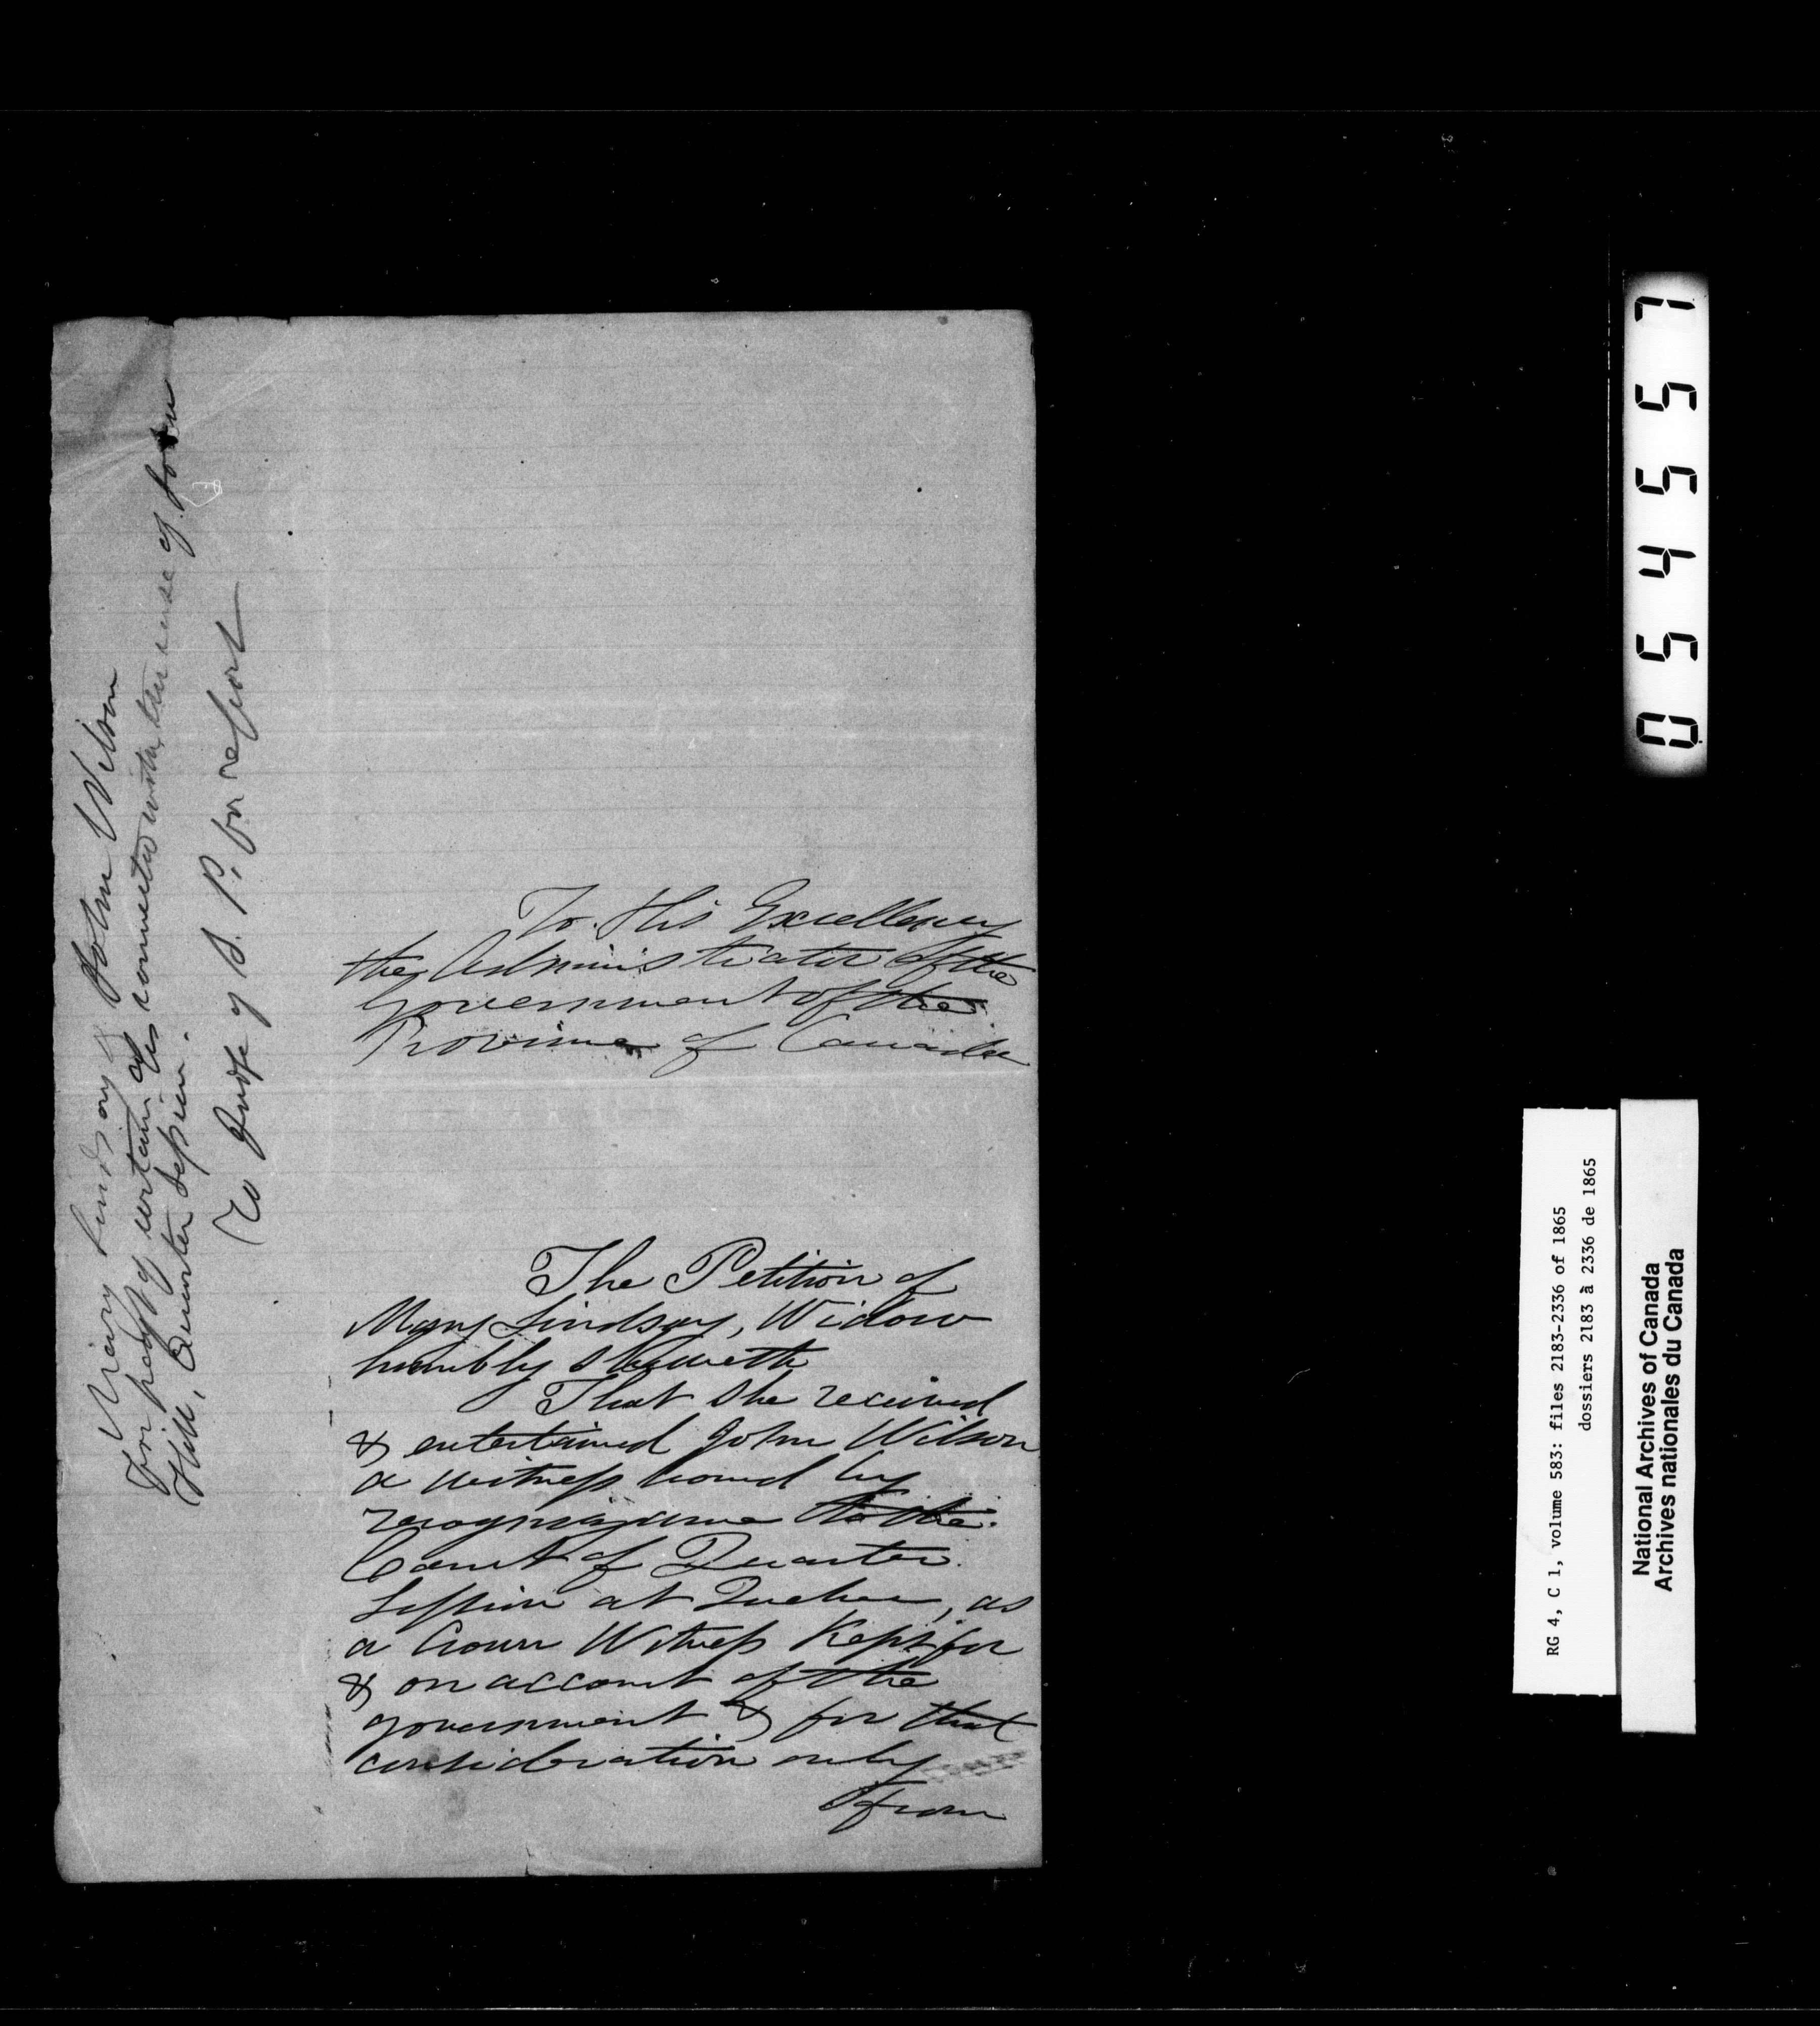 Mary Lindsay & John Wilson
For payt of certain a/cs connected with the case of John
Hill, Quarter Session.
To Judge of S. P. for report
To His Excellency
the Administrator of the
Government of the
Province of Canada
The Petition of
Mary Lindsay, Widow
humbly Sheweth
That She received
& entertained John Wilson
a witness bound by
recognizance to the
Court of Quarter
Session at Quebec, as
a Crown Witness Kept for
& on account of the
government & for that
consideration only
from
054557
RG 4, C 1, volume 583: files 2183-2336 of 1865
dossiers 2183 à 2336 de 1865
National Archives of Canada
Archives nationales du Canada